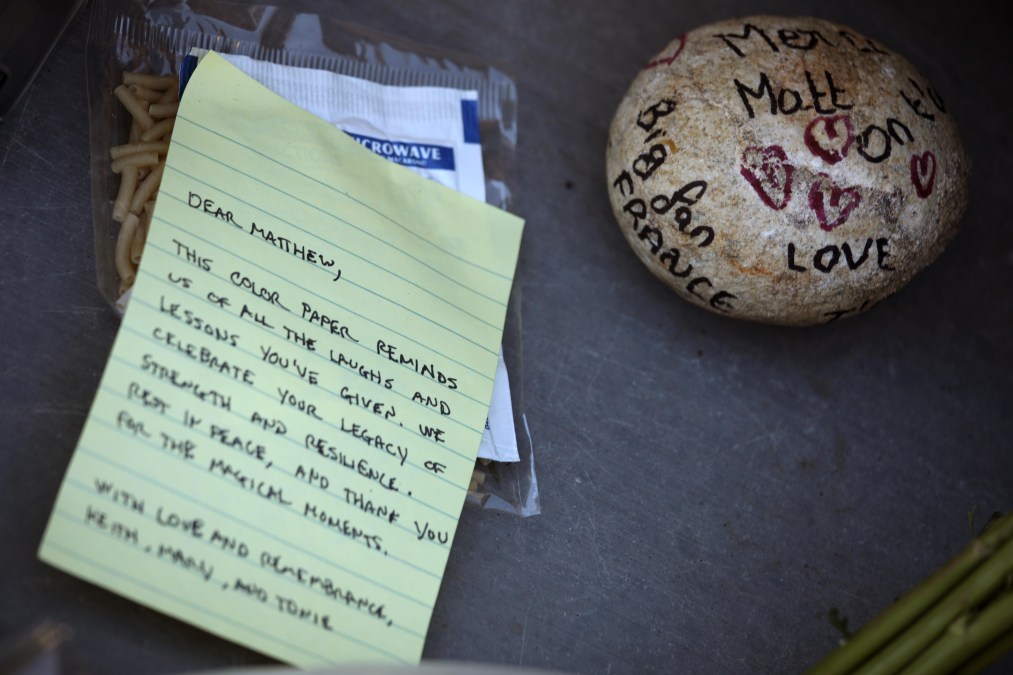 MICROWAVE
DEAR MATTHEW,
THIS COLOR PAPER REMINDS
US OF ALL THE LAUGHS AND
LESSONS YOU'VE GIVEN. WE
CELEBRATE YOUR LEGACY OF
STRENGTH AND RESILIENCE.
REST IN PEACE, AND THANK YOU
FOR THE MAGICAL MOMENTS.
WITH LOVE AND REMEMBRANCE,
KEITH, MANU, AND TONIE
Merci
Matt
on
Big fan
FRANCE
LOVE